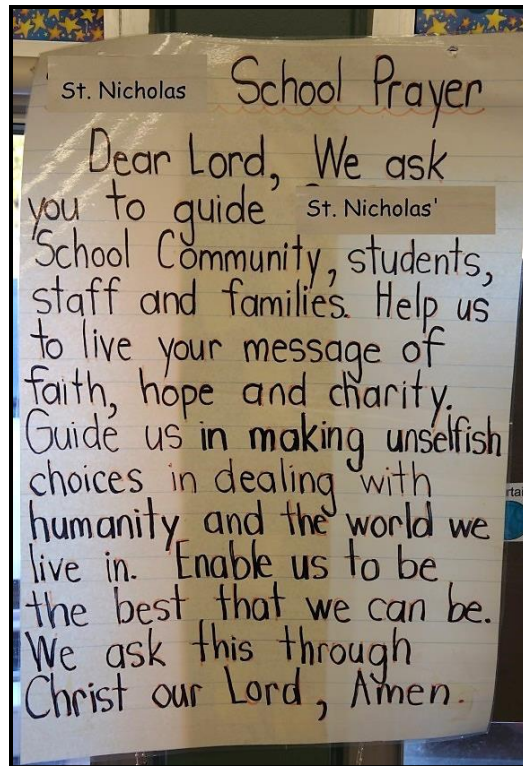 St. Nicholas School Prayer
Dear Lord, We ask
you to guide St. Nicholas'
School Community, students,
staff and families. Help us
to live your message of
faith, hope and charity.
Guide us in making unselfish
choices in dealing with
humanity and the world we
live in. Enable us to be
the best that we can be.
We ask this through
Christ our Lord, Amen.